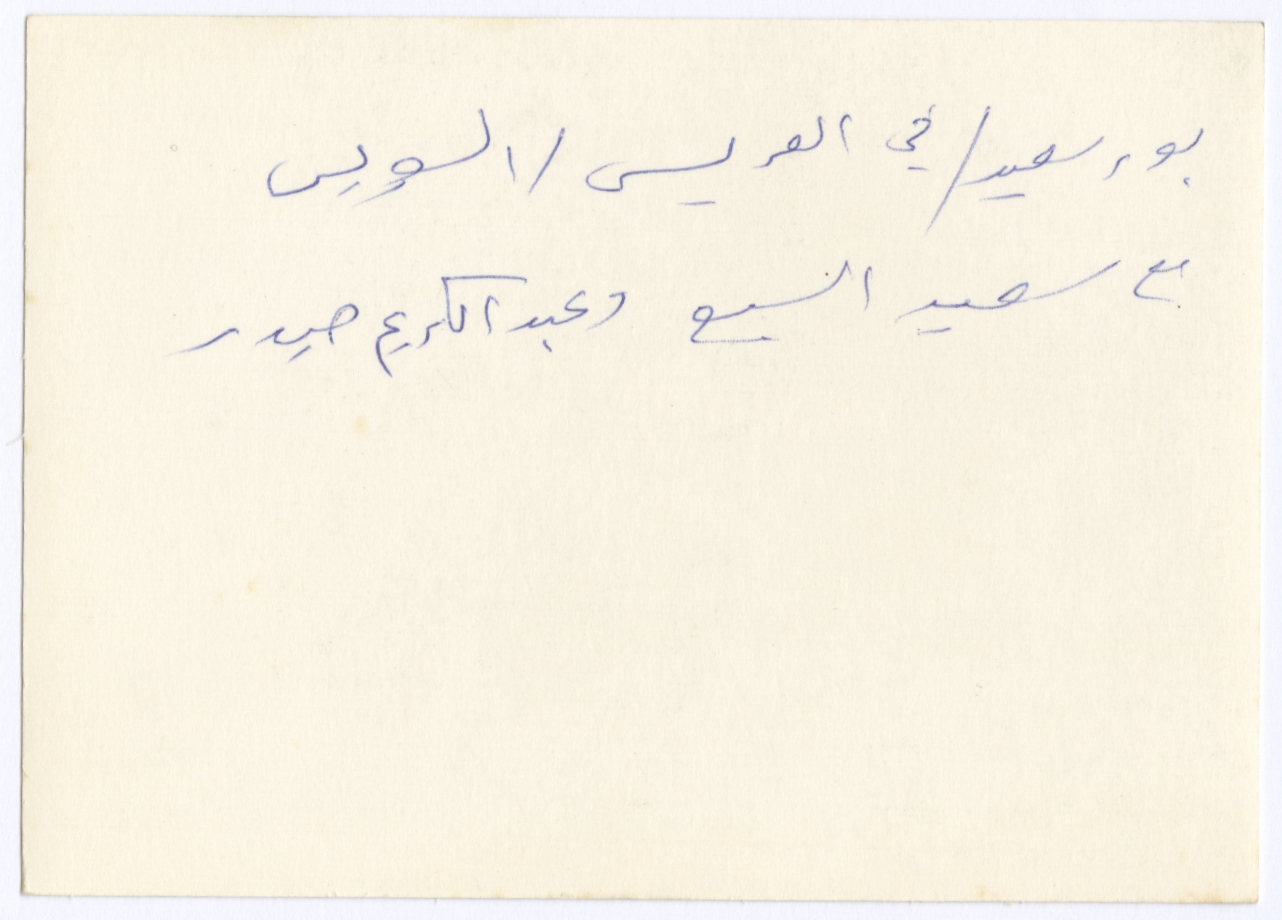 بور سعيد / في العريس / السويس
مع سعيد السبع وعبد الكريم حيدر